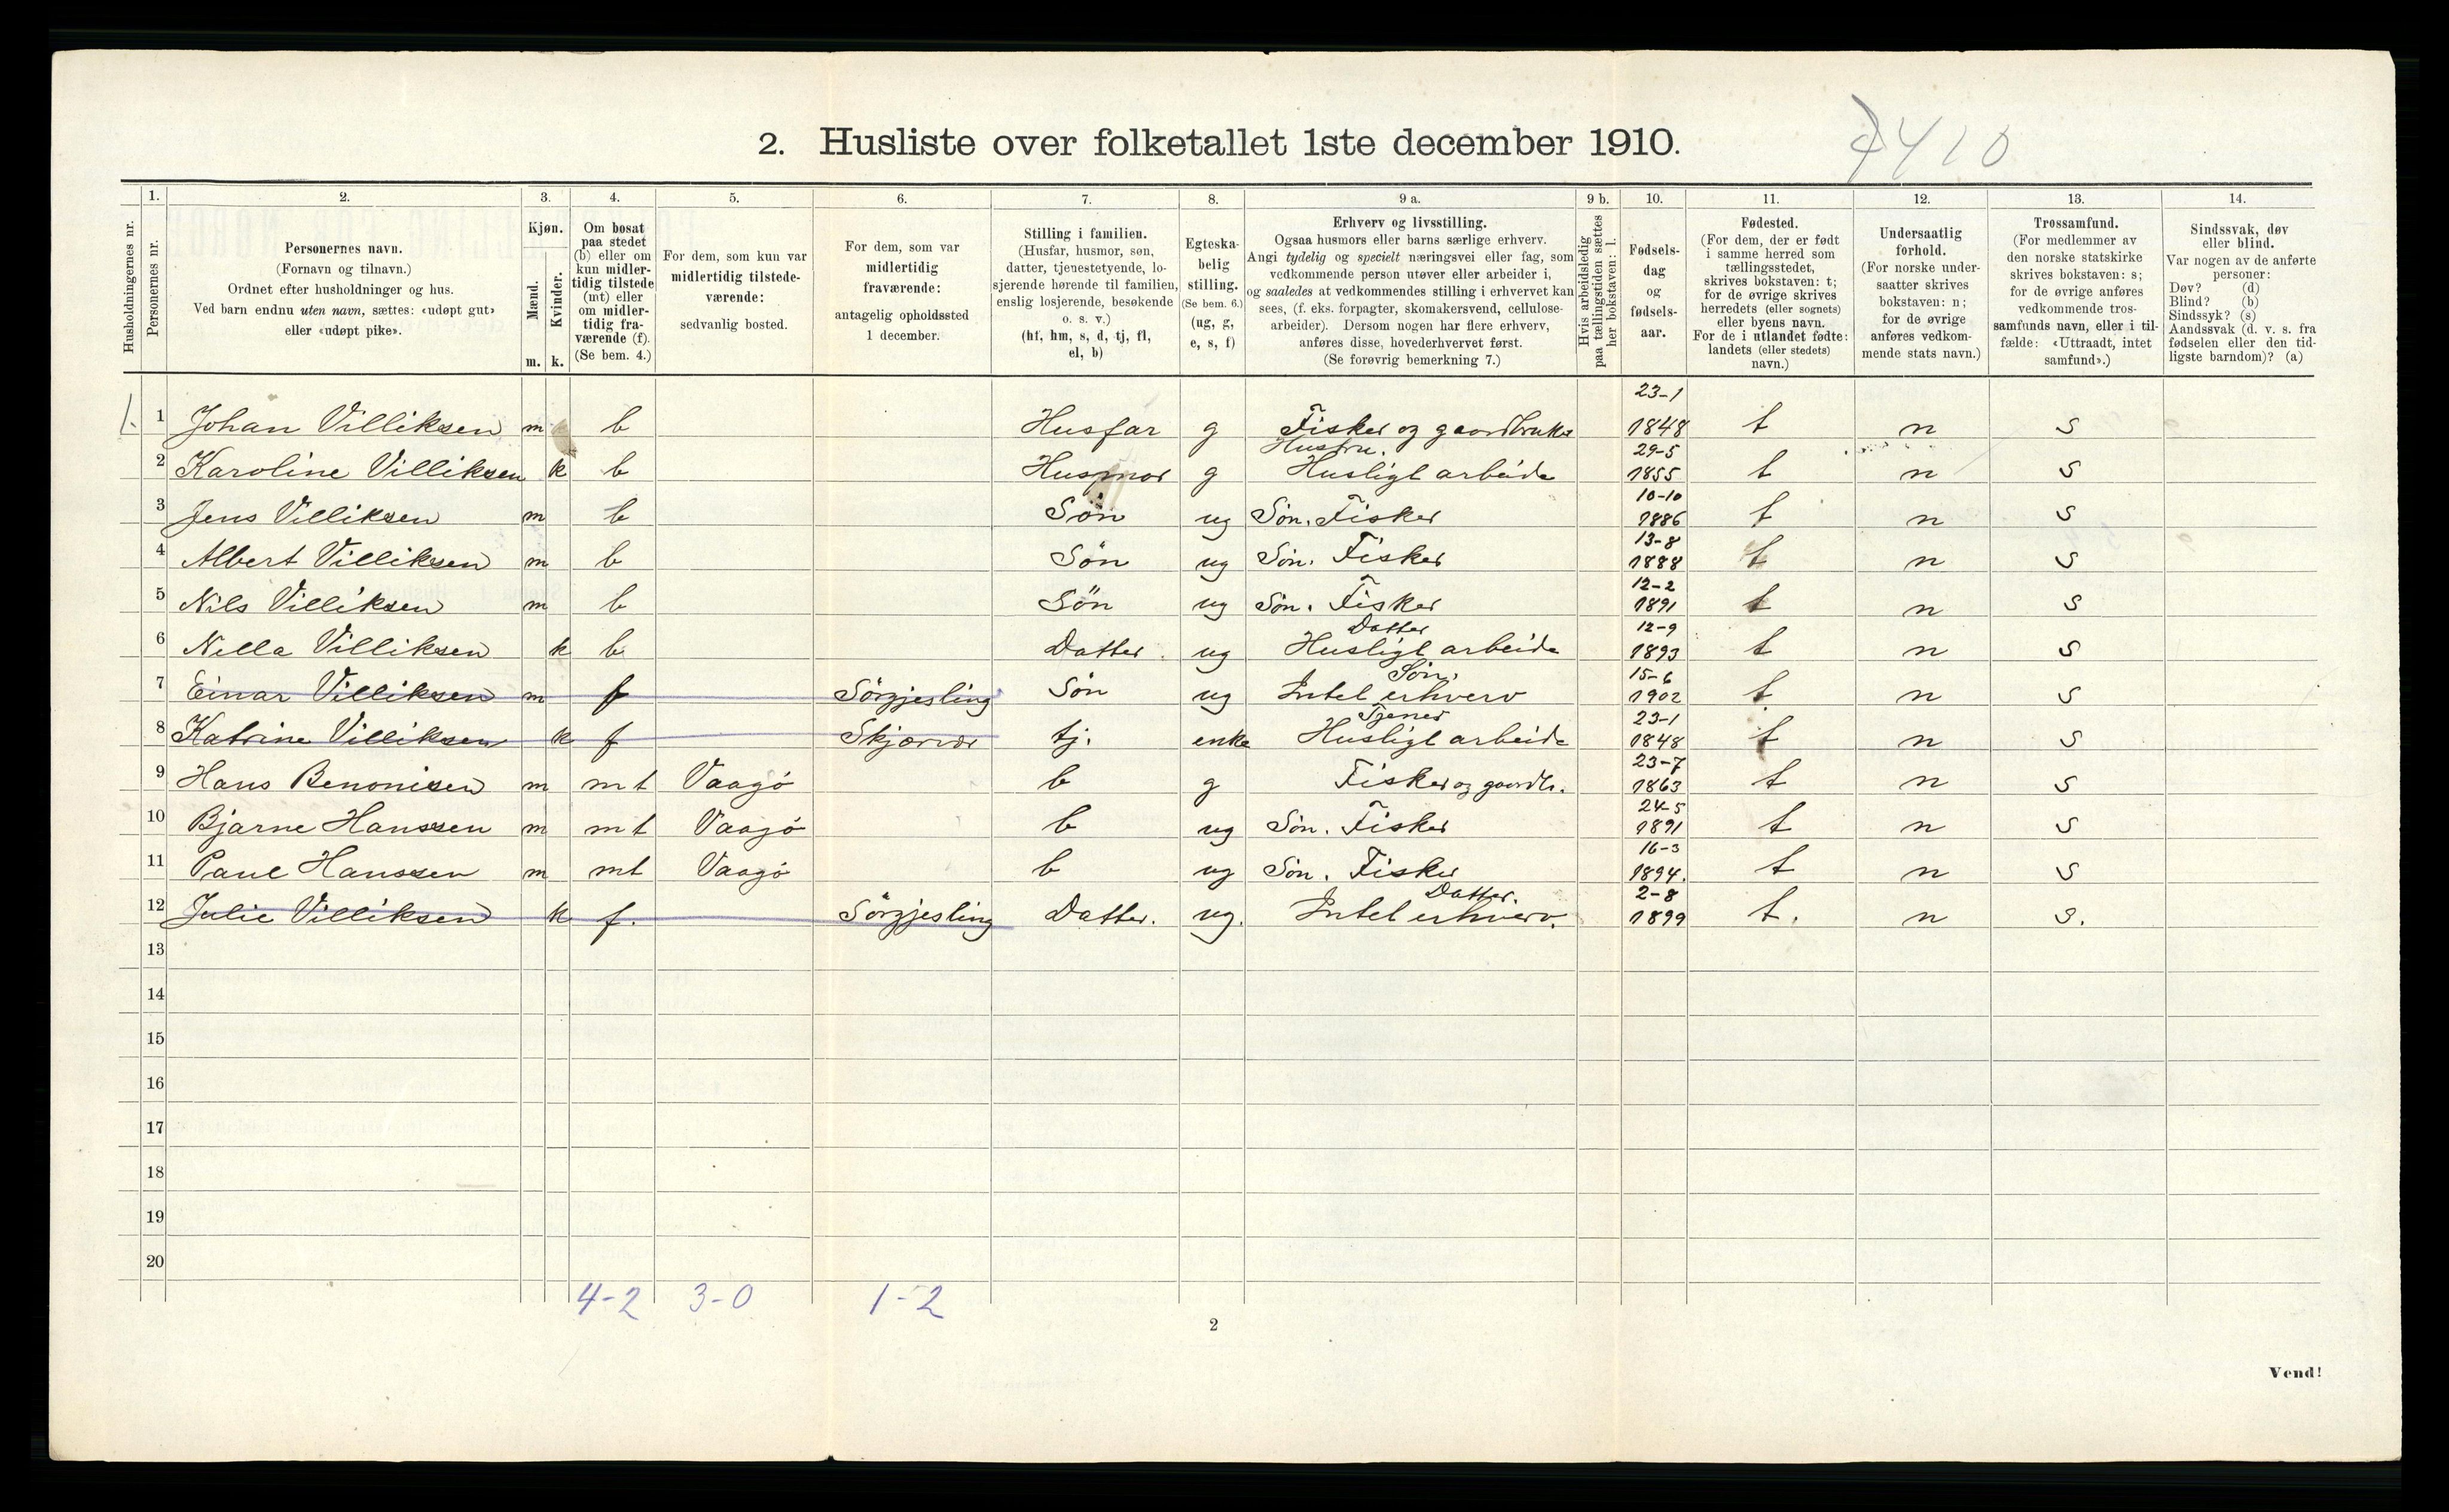 2. Husliste over folketallet 1ste december 1910.
7410
Husholdningernes nr.
1. Personernes nr.
2. Personernes navn.
(Fornavn og tilnavn.)
Ordnet efter husholdninger og hus.
Ved barn endnu uten navn, sættes: «udøpt gut»
eller «udøpt pike».
3. Kjøn.
Mænd. m.
Kvinder. k.
4. Om bosat
paa stedet
(b) eller om
kun midler-
tidig tilstede
(mt) eller
om midler-
tidig fra-
værende (f).
(Se bem. 4.)
5. For dem, som kun var
midlertidig tilstede-
værende:
sedvanlig bosted.
6. For dem, som var
midlertidig
fraværende:
antagelig opholdssted
1 december.
7. Stilling i familien.
(Husfar, husmor, søn,
datter, tjenestetyende, lo-
sjerende hørende til familien,
enslig losjerende, besøkende
o. s. v.)
(hf, hm, s, d, tj, fl,
el, b)
8. Egteska-
belig
stilling.
(Se bem. 6.)
(ug, g,
e, s, f)
9 a. Erhverv og livsstilling.
Ogsaa husmors eller barns særlige erhverv.
Angi tydelig og specielt næringsvei eller fag, som
vedkommende person utøver eller arbeider i,
og saaledes at vedkommendes stilling i erhvervet kan
sees, (f. eks. forpagter, skomakersvend, cellulose-
arbeider). Dersom nogen har flere erhverv,
anføres disse, hovederhvervet først.
(Se forøvrig bemerkning 7.)
9 b. Hvis arbeidsledig
paa tællingstiden sættes
her bokstaven: l.
10. Fødsels-
dag
og
fødsels-
aar.
11. Fødested.
(For dem, der er født
i samme herred som
tællingsstedet,
skrives bokstaven: t;
for de øvrige skrives
herredets (eller sognets)
eller byens navn.
For de i utlandet fødte:
landets (eller stedets)
navn.)
12. Undersaatlig
forhold.
(For norske under-
saatter skrives
bokstaven: n;
for de øvrige
anføres vedkom-
mende stats navn.)
13. Trossamfund.
(For medlemmer av
den norske statskirke
skrives bokstaven: s;
for de øvrige anføres
vedkommende tros-
samfunds navn, eller i til-
fælde: «Uttraadt, intet
samfund».)
14. Sindssvak, døv
eller blind.
Var nogen av de anførte
personer:
Døv? (d)
Blind? (b)
Sindssyk? (s)
Aandssvak (d. v. s. fra
fødselen eller den tid-
ligste barndom)? (a)
1. 1 Johan Villiksen m b Husfar g Fisker og gaardbruker 23-1 1848 t n s
2 Karoline Villiksen k b Husmor g Hustru. Husligt arbeide 29-5 1855 t n s
3 Jens Villiksen m b Sön ug Sön. Fisker 10-10 1886 t n s
4 Albert Villiksen m b Sön ug Sön. Fisker 13-8 1888 t n s
5 Nils Villiksen m b Sön ug Sön. Fisker 12-2 1891 t n s
6 Nella Villiksen k b Datter. ug Datter Husligt arbeide 12-9 1893 t n s
7 Einar Villiksen m f Sörgjesling Sön ug Sön. Intet erhverv 15-6 1902 t n s
8 Katrine Villiksen k f Skjærvær tj. enke Tjener Husligt arbeide 23-1 1848 t n s
9 Hans Benonisen m mt Vaagö b g Fisker og gaardb. 23-7 1863 t n s
10 Bjarne Hanssen m mt Vaagö b ug Sön. Fisker 24-5 1891 t n s
11 Paul Hanssen m mt Vaagö b ug Sön. Fisker 16-3 1894. t n s
12 Julie Villiksen k f. Sörgjesling Datter. ug. Datter. Intet erhverv. 2-8 1899 t. n s.
13
14
15
16
17
18
19
20
4-2 3-0 1-2
2
Vend!